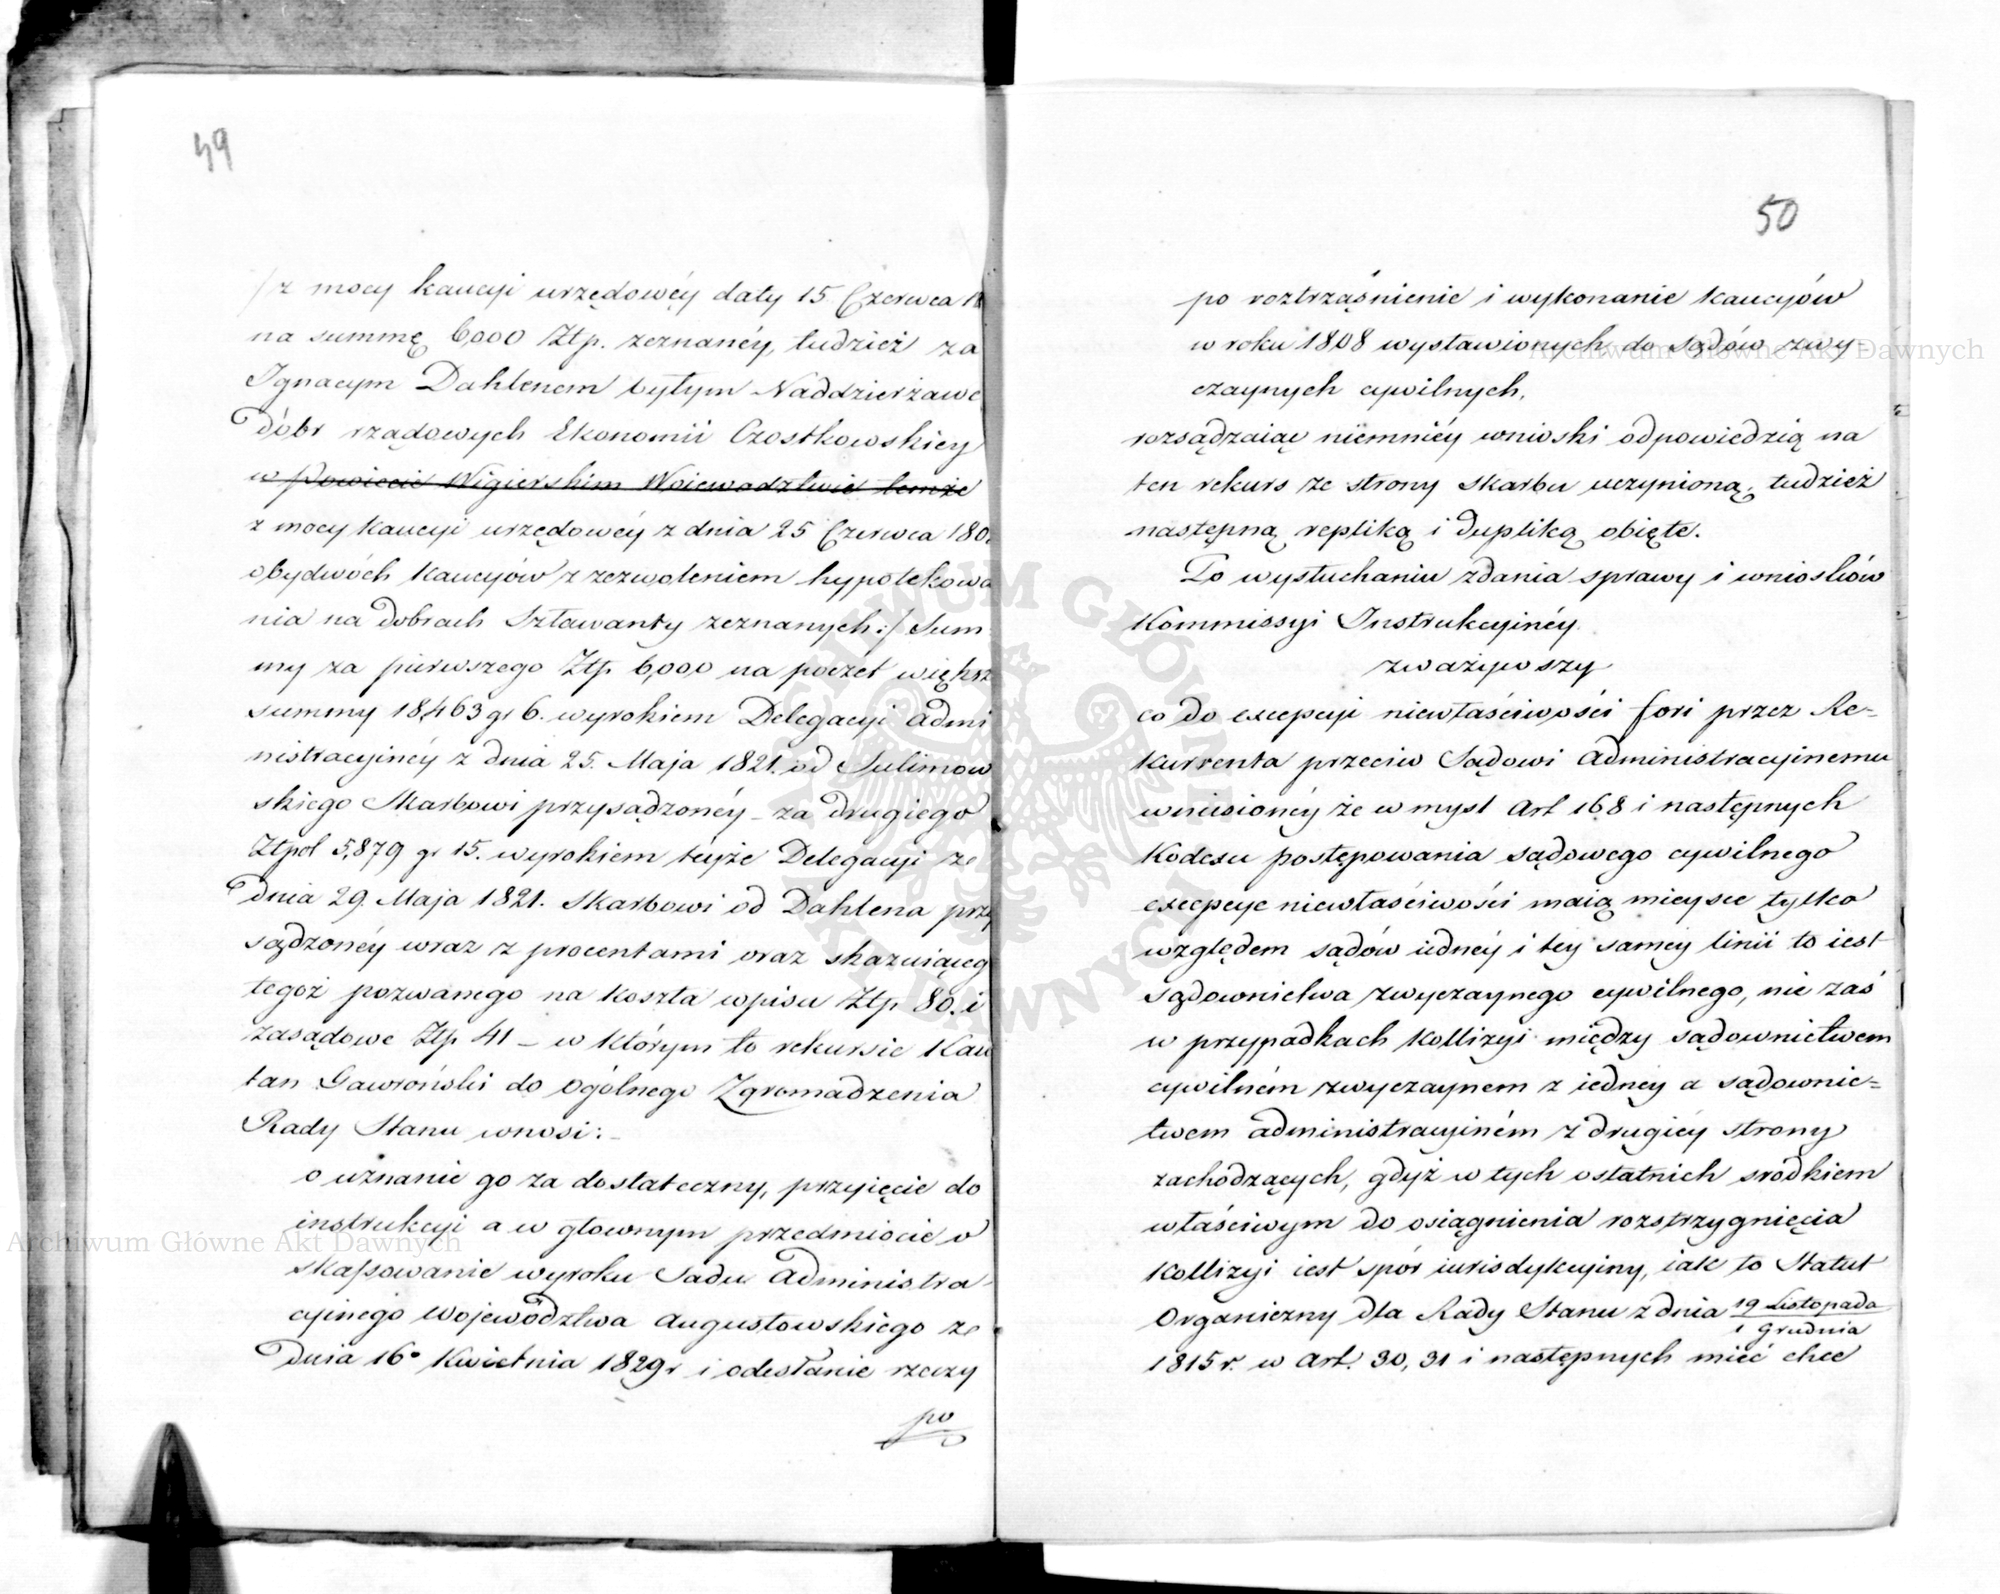 49
/z mocy kaucyi urzędowéy daty 15 Czerwca 18
na summę 6,000 Ztp. zeznanéy, tudzież za
Ignacym Dahlenem byłym Naddzierżawc
dóbr rządowych Ekonomii Czostkowskiey
w Powiecie Wigierskim Woiewodztwie temże
z mocy kaucyi urzędowéy z dnia 25 Czerwca 180
obydwóch kaucyów z zezwoleniem hypotekowa
nia na dobrach Sztawanty zeznanych:/ Sum
my za pierwszego Ztp 6,000 na poczet większ
summy 18,463 gr 6. wyrokiem Delegacyi Admi
nistracyinéy z dnia 25. Maja 1821. od Sulimow
skiego Skarbowi przysądzonéy – za drugiego
Ztpol 5,879 gr 15. wyrokiem teyże Delegacyi ze
dnia 29. Maja 1821. Skarbowi od Dahlena przy
sądzonéy wraz z procentami oraz skazuiąceg
tegoż pozwanego na koszta wpisu Ztp 80. i
zasądowe Ztp 41 – w którym to rekursie Kaw
tan Gawroński do Ogólnego Zgromadzenia
Rady Stanu wnosi:–
o uznanie go za dostateczny, przyięcie do
instrukcyi a w głownym przedmiocie o
skassowanie wyroku Sadu Administra
cyinego Województwa Augustowskiego ze
dnia 16º Kwietnia 1829 r i odesłanie rzeczy
po
50
po roztrząśnienie i wykonanie kaucyów
w roku 1808 wystawionych do sądów zwy-
czaynych cywilnych.
rozsądzaiąc niemniéy wnioski odpowiedzią na
ten rekurs ze strony Skarbu uczynioną, tudzież
następną repliką i dupliką obięte.
Po wysłuchaniu zdania sprawy i wniosków
Kommissyi Instrukcyinéy.
zważywszy
co do excepcyi niewłaściwości fori przez Re=
kurrenta przeciw Sądowi Administracyinemu
wniesionéy że w myśl Art 168 i następnych
Kodexu postępowania sądowego cywilnego
excepcye niewłaściwości maią mieysce tylko
względem sądów iednéy i tey saméy linii to iest
Sądownictwa zwyczaynego cywilnego, nie zaś
w przypadkach kollizyi między sądownictwem
cywilném zwyczaynem z iednéy a sądownic=
twem administracyiném z drugiéy strony
zachodzących, gdyż w tych ostatnich srodkiem
właściwym do osiągnienia rozstrzygnięcia
kollizyi iest spór iurisdykcyiny, iak to Statut
Organiczny dla Rady Stanu z dnia 19 Listopada
1 Grudnia
1815 r. w Art. 30, 31 i następnych mieć chce
Archiwum Główne Akt Dawnych
Archiwum Główne Akt Dawnych
ARCHIWUM GŁÓWNE AKT DAWNYCH